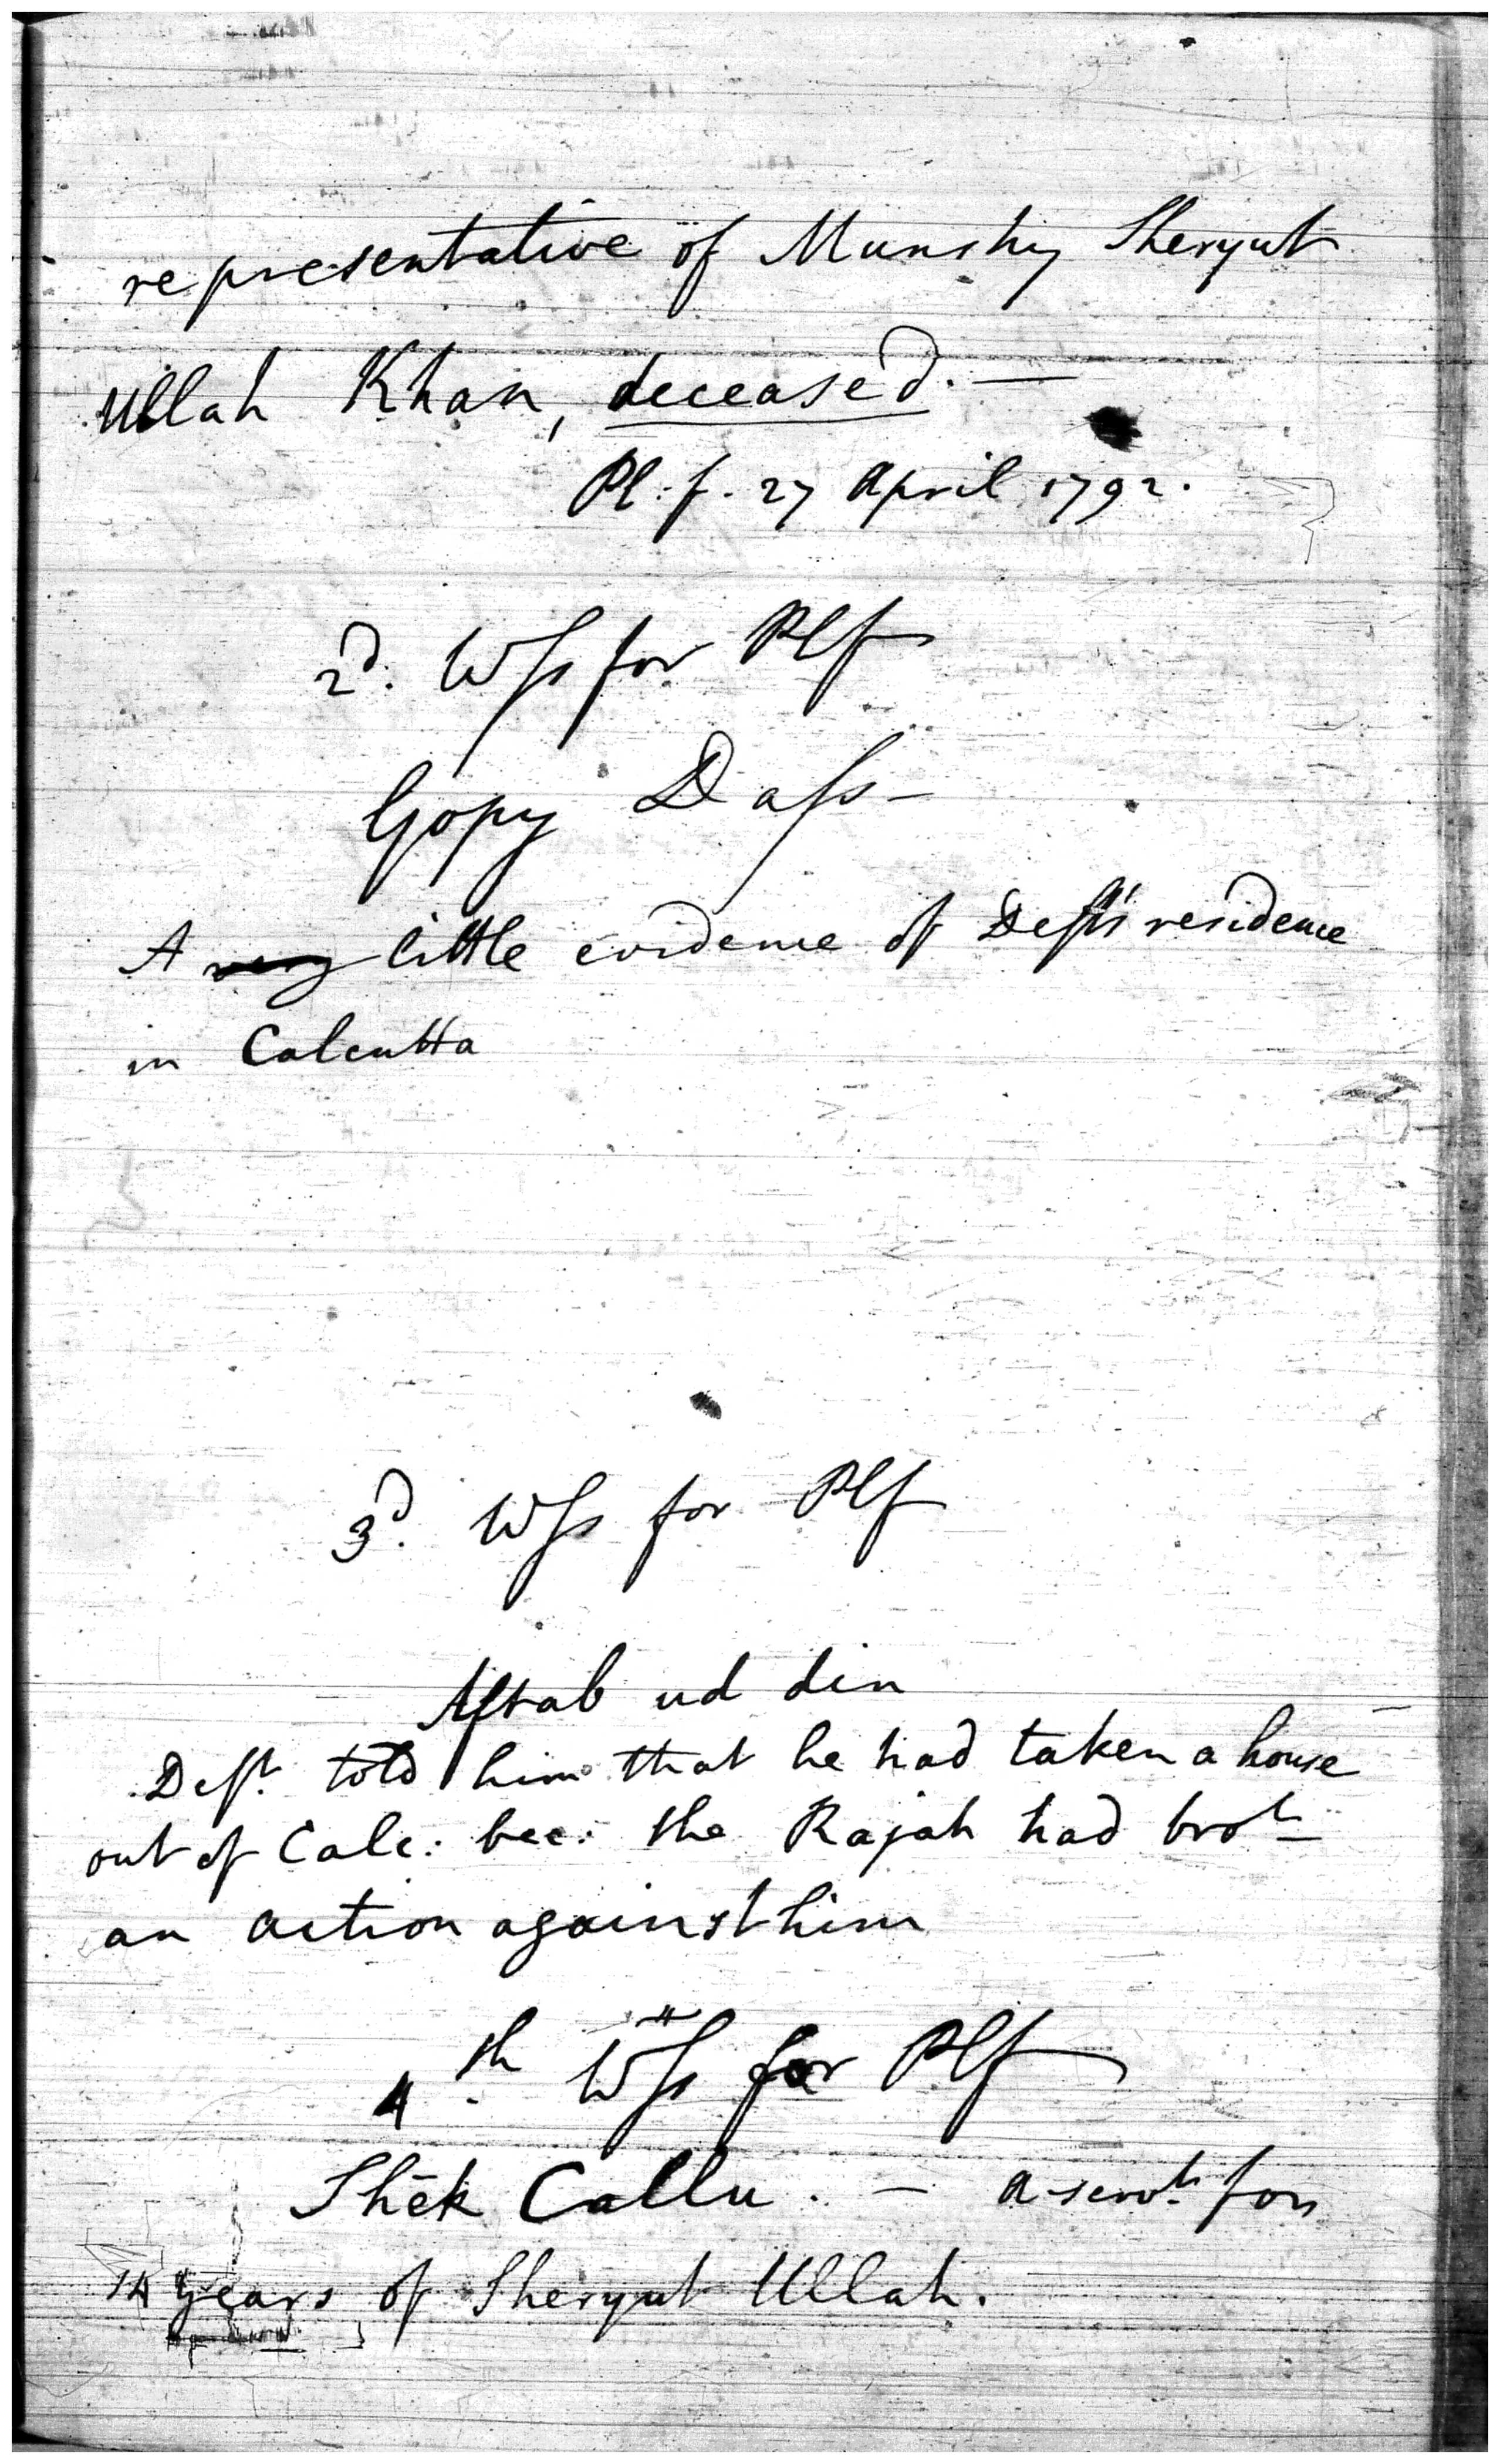 representative of Munshy Sheryut
Ullah Khan, deceased. —
Pl: f. 27 April 1792.
2d. Wss for Plf
Gopy Dass —
A very little evidence of Deft's residence
in Calcutta
3d. Wss for Plf
Aftab ud din
Deft. told him that he had taken a house
out of Calc: bec: the Rajah had brot
an action against him
4th. Wss for Plf
Shēk Callu. — a servt. for
14 years of Sheryut Ullah.